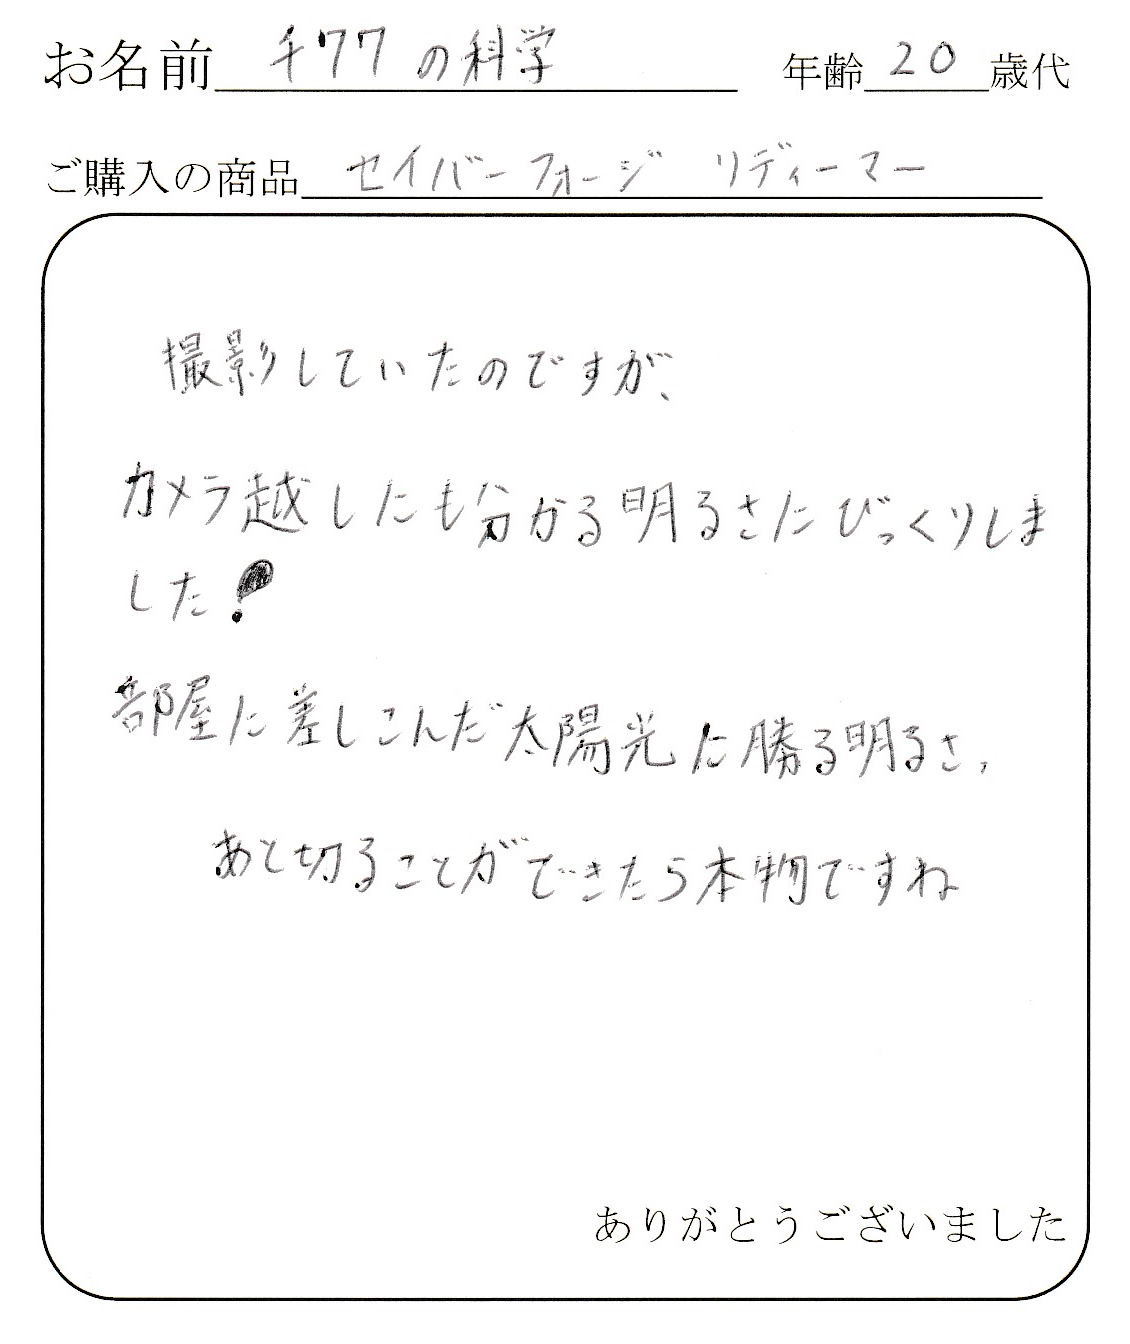 お名前 チワワの科学 年齢 20 歳代
ご購入の商品 セイバーフォージ リディーマー
撮影していたのですが、
カメラ越しにも分かる明るさにびっくりしま
した!
部屋に差しこんだ太陽光に勝る明るさ,
あと切ることができたら本物ですね
ありがとうございました